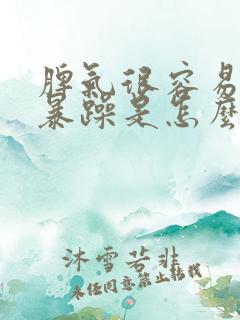 脾氣很容易
暴躁是怎麼
沐雪若非
未经同意禁止转载